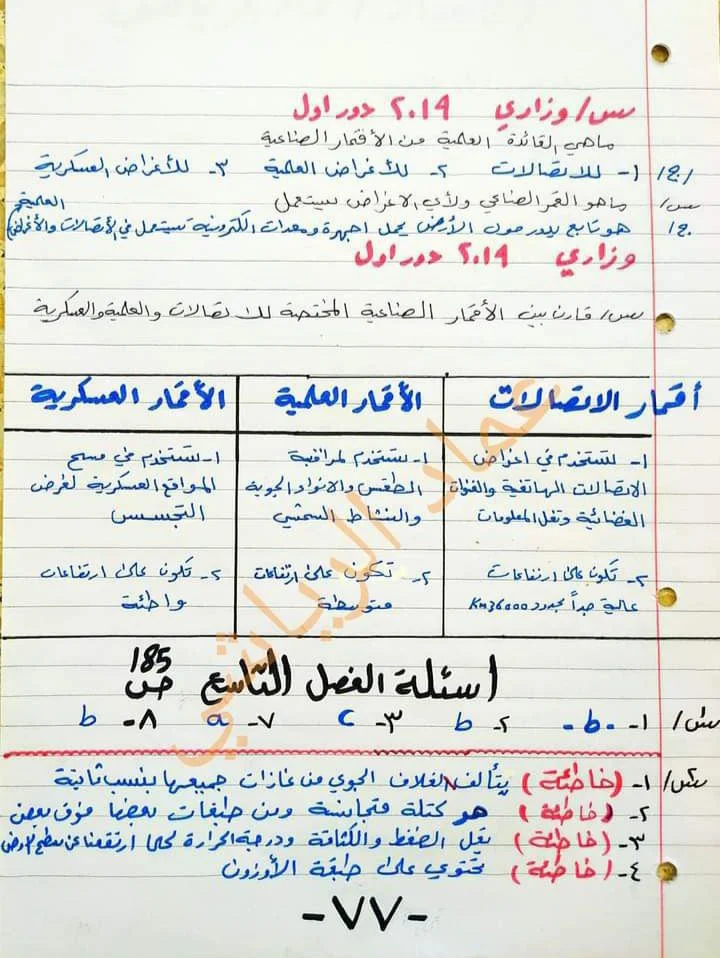 س/ وزاري ٢٠١٩ دور اول
ماهي الفائدة العلمية من الأقمار الصناعية
ج/ ١- للاتصالات ٢- للأغراض العلمية ٣- للأغراض العسكرية
س/ ماهو القمر الصناعي ولأي الاغراض يستعمل
ج/ هو تابع يدور حول الأرض يحمل اجهزة ومعدات الكترونية تستعمل في الأتصالات والأغراض العلمية
وزاري ٢٠١٩ دور اول
س/ قارن بين الأقمار الصناعية المختصة للاتصالات والعلمية والعسكرية
أقمار الاتصالات الأقمار العلمية الأقمار العسكرية
١- تستخدم في اغراض ١- تستخدم لمراقبة ١- تستخدم في مسح
الاتصالات الهاتفية والقنوات الطقس والانواء الجوية المواقع العسكرية لغرض
الفضائية ونقل المعلومات والنشاط الشمسي التجسس
٢- تكون على ارتفاعات ٢- تكون على ارتفاعات ٢- تكون على ارتفاعات
عالية جداً بحدود 36000 Km متوسطة واطئة
اسئلة الفصل التاسع ص 185
س١/ ١- b ٢- b ٣- c ٧- a ٨- b
س٢/ ١- (خاطئة) يتألف الغلاف الجوي من غازات جميعها بنسب ثابتة
٢- (خاطئة) هو كتلة متجانسة ومن طبقات بعضها فوق بعض
٣- (خاطئة) يقل الضغط والكثافة ودرجة الحرارة كلما ارتفعنا عن سطح الارض
٤- (خاطئة) تحتوي على طبقة الأوزون
-٧٧-
عماد الرياشي